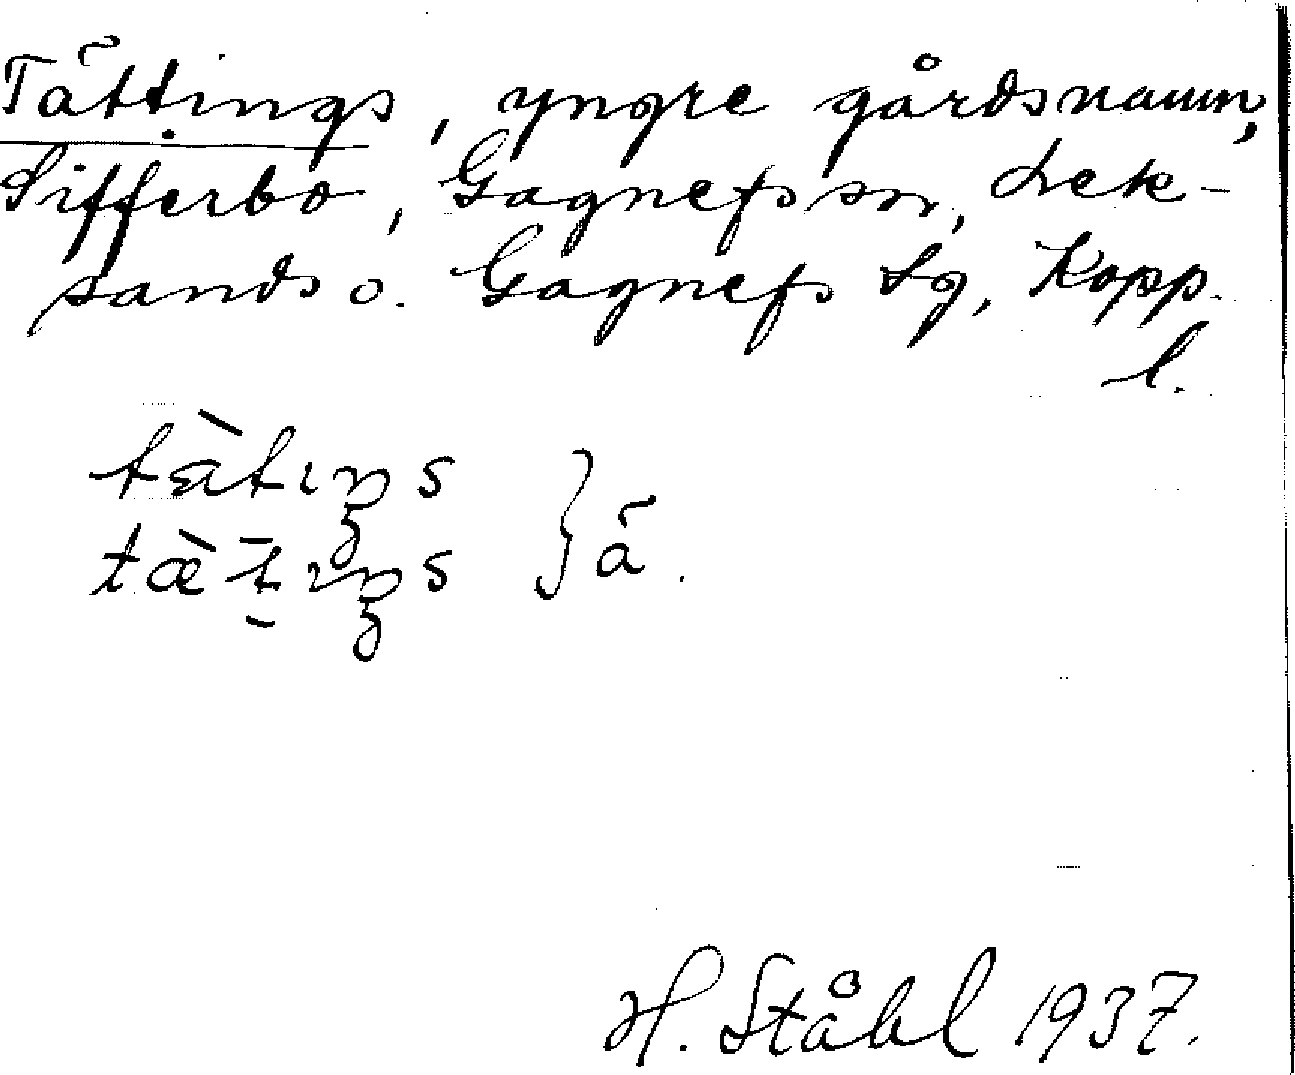 Tättings, yngre gårdsnamn,
Sifferbo, Gagnefs sn, Lek-
sands o. Gagnefs tg, Kopp.
l.
tä̀tıŋs
tæ̀t̄ıŋs } ä.
H. Ståhl 1937.